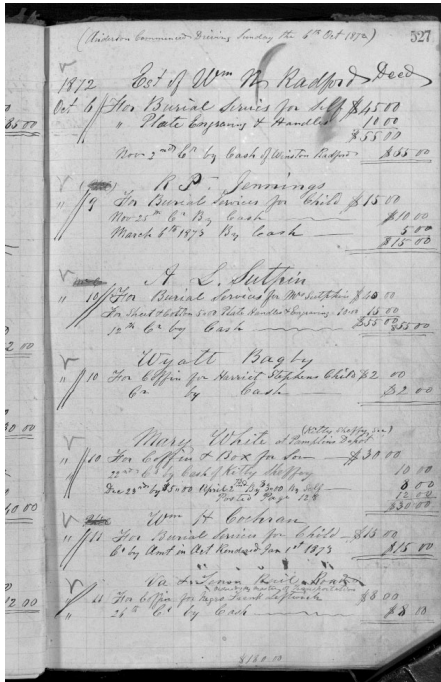 (Anderson Commenced Driving Sunday the 6th Oct 1872)
327
1872 Est of Wm M Radford Decd
Oct 6 For Burial Services for Self $45 00
" Plate Engraving & Handles 10 00
$55 00
Nov 2nd Cr by Cash of Winston Radford $55 00
R P Jennings
" 9 For Burial Services for Child $15 00
Nov 25th Cr By Cash $10 00
March 6th 1873 By Cash 5 00
$15 00
A L Sutpin
" 10 For Burial Services for Mrs Sutphin $40 00
For Shroud Cotton 5 00 Plate Handles & Engraving 10 00 15 00
12th Cr by Cash $55 00 $55 00
Wyatt Bagby
" 10 For Coffin for Harriet Stephens Child $2 00
Cr by Cash $2 00
Mary White at Pamplins Depot
" 10 For Coffin & Box for Son $30 00
22nd Cr by Cash of Kitty 10 00
Dec 23rd by $5 00 April 2nd By $3 00 By Self 8 00
Posted Page 128 12 00
$30 00
Wm H Cochran
" 11 For Burial Services for Child $15 00
Cr by Amt in Act Rendered Jan 1st 1873 $15 00
Va & Tenn Rail Road
" 11 For Coffin for Negro Frank $8 00
26th Cr by Cash $8 00
$180 00
85 00
2 00
30 00
40 00
12 00